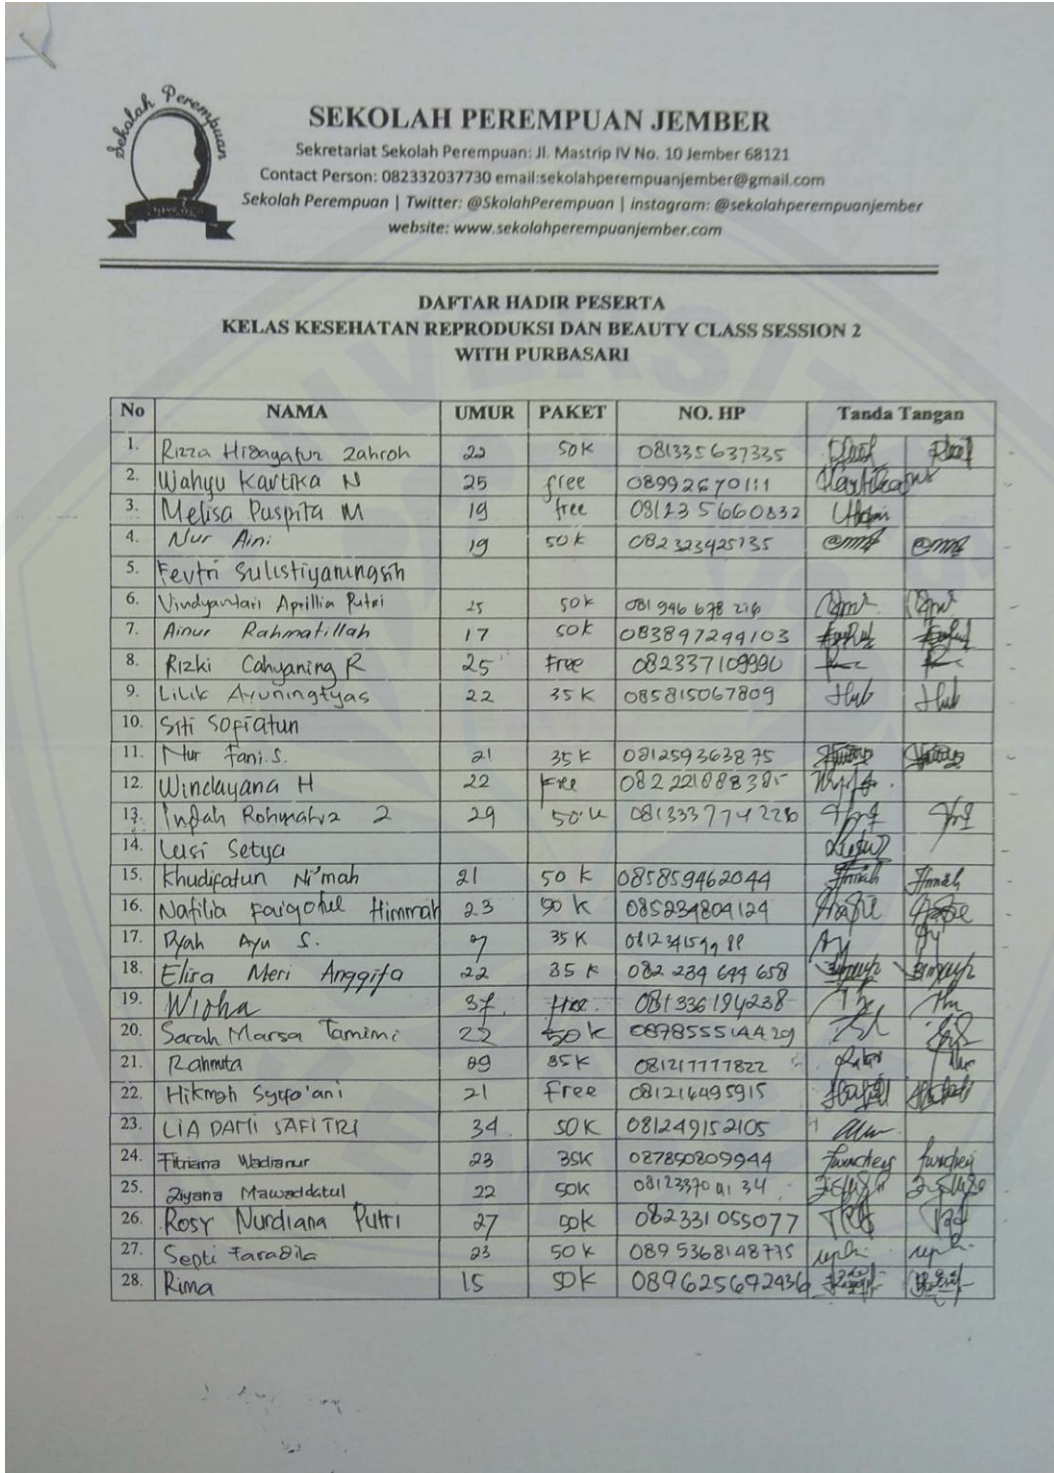 Sekolah Perempuan
SEKOLAH PEREMPUAN JEMBER
Sekretariat Sekolah Perempuan: Jl. Mastrip IV No. 10 Jember 68121
Contact Person: 082332037730 email:sekolahperempuanjember@gmail.com
Sekolah Perempuan | Twitter: @SkolahPerempuan | instagram: @sekolahperempuanjember
website: www.sekolahperempuanjember.com
DAFTAR HADIR PESERTA
KELAS KESEHATAN REPRODUKSI DAN BEAUTY CLASS SESSION 2
WITH PURBASARI
No NAMA UMUR PAKET NO. HP Tanda Tangan
1. Rizza Hidayatur Zahroh 22 50K 081335637335
2. Wahyu Kartika N 25 free 08992670111
3. Melisa Puspita M 19 free 081235660832
4. Nur Aini 19 50K
5. Fevtri Sulistiyaningsih
6. Vindyantari Aprillia Putri 25 50K 081 946 678 216
7. Ainur Rahmatillah 17 50K 083897299103
8. Rizki Cahyaning R 25 Free 082337109990
9. Lilik Ayuningtyas 22 35K 085815067809
10. Siti Sofiatun
11. Nur Fani.S. 21 35K 081259363875
12. Windayana H 22 Free
13. Indah 29 50K
14. Lusi Setya
15. Khudifatun Ni'mah 21 50 K 085859462044
16. Nafilia Faiqotul Himmah 23 50 K 085234804124
17. Dyah Ayu S. 35K
18. Elisa Meri Anggita 22 35K 082 234 644 658
19. 37 free. 081336194238
20. Sarah Marsa Tamimi 22 50K 087855514429
21. Rahmita 35K 081217777822
22. Hikmah Syifa'ani 21 Free 081216495915
23. LIA DAMI SAFITRI 34 50K 081249152105
24. Fitriana Wadianur 23 35K 087850809944
25. Ziyana Mawaddatul 22 50K
26. Rosy Nurdiana Putri 27 50K 082331055077
27. Septi Faradila 23 50K 0895368148775
28. Rima 15 50K 089625692436